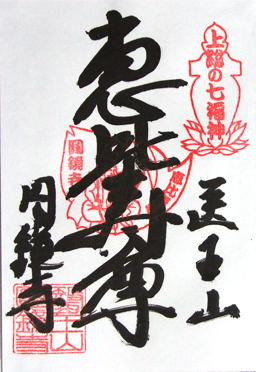 上総の七福神
医王山
恵比寿尊
円鏡寺
圓鏡寺